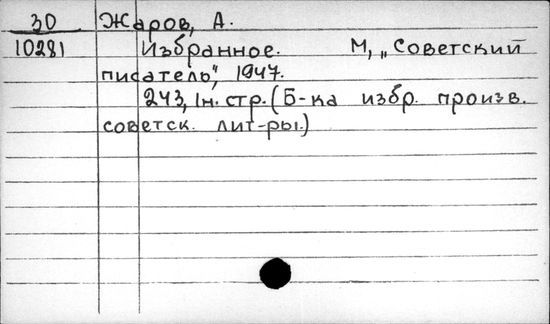 30 Жаров, А.
10281 Избранное. М, „Советский
писатель", 1947.
243, 1н. стр. (Б-ка избр. произв.
советск. лит-ры.)